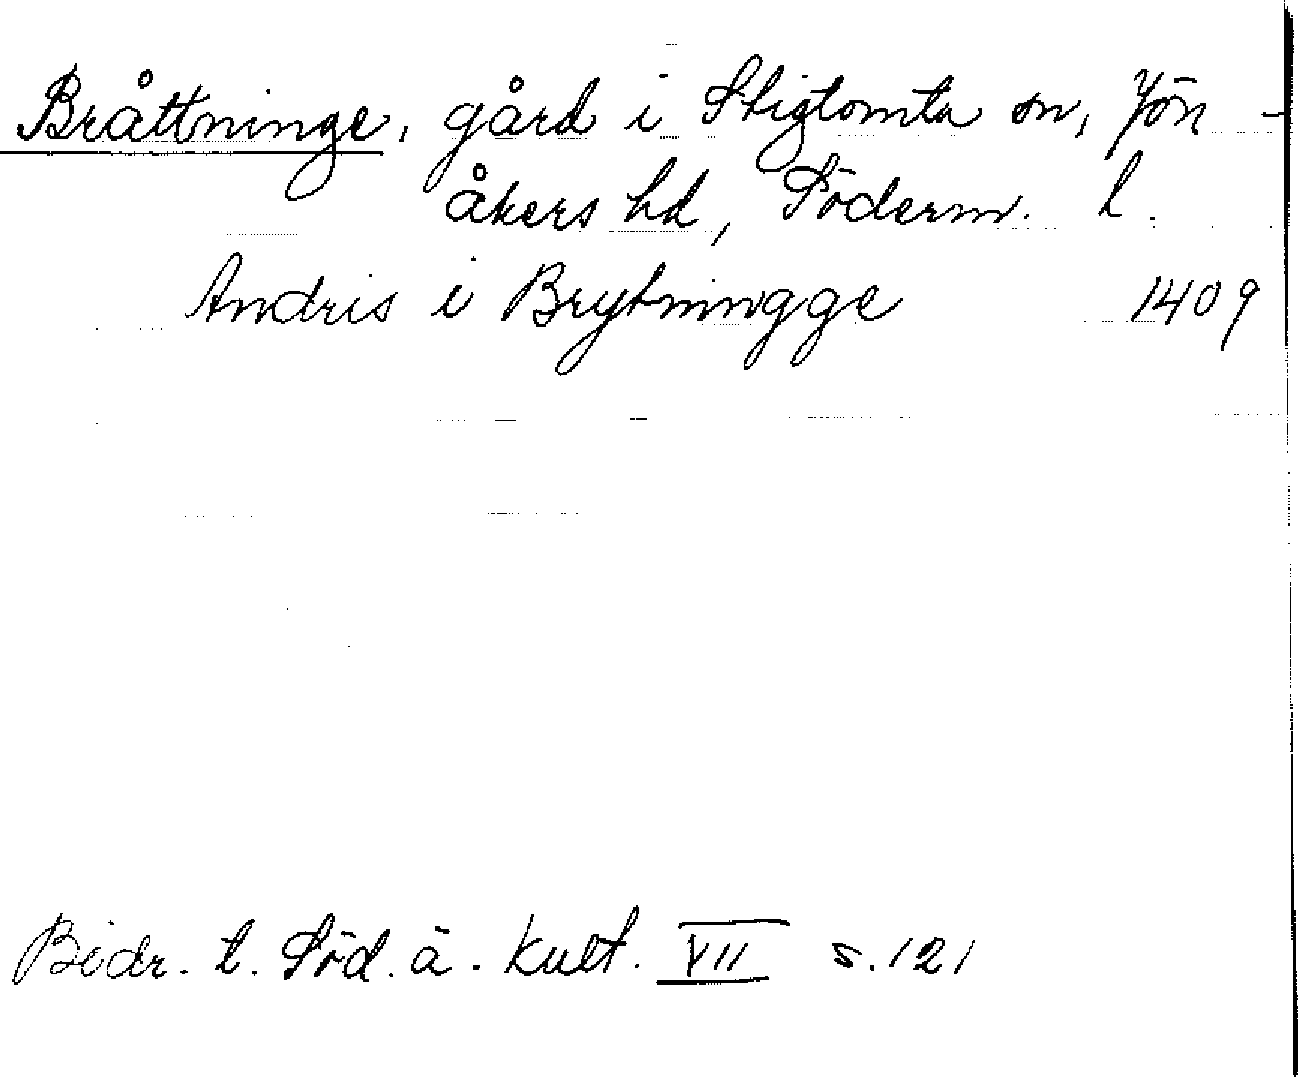 Bråttninge, gård i Stigtomta sn, Jön-
åkers hd, Söderm. l.
Andris i Brytningge 1409
Bidr. t. Söd. ä. Kult. VII s. 121